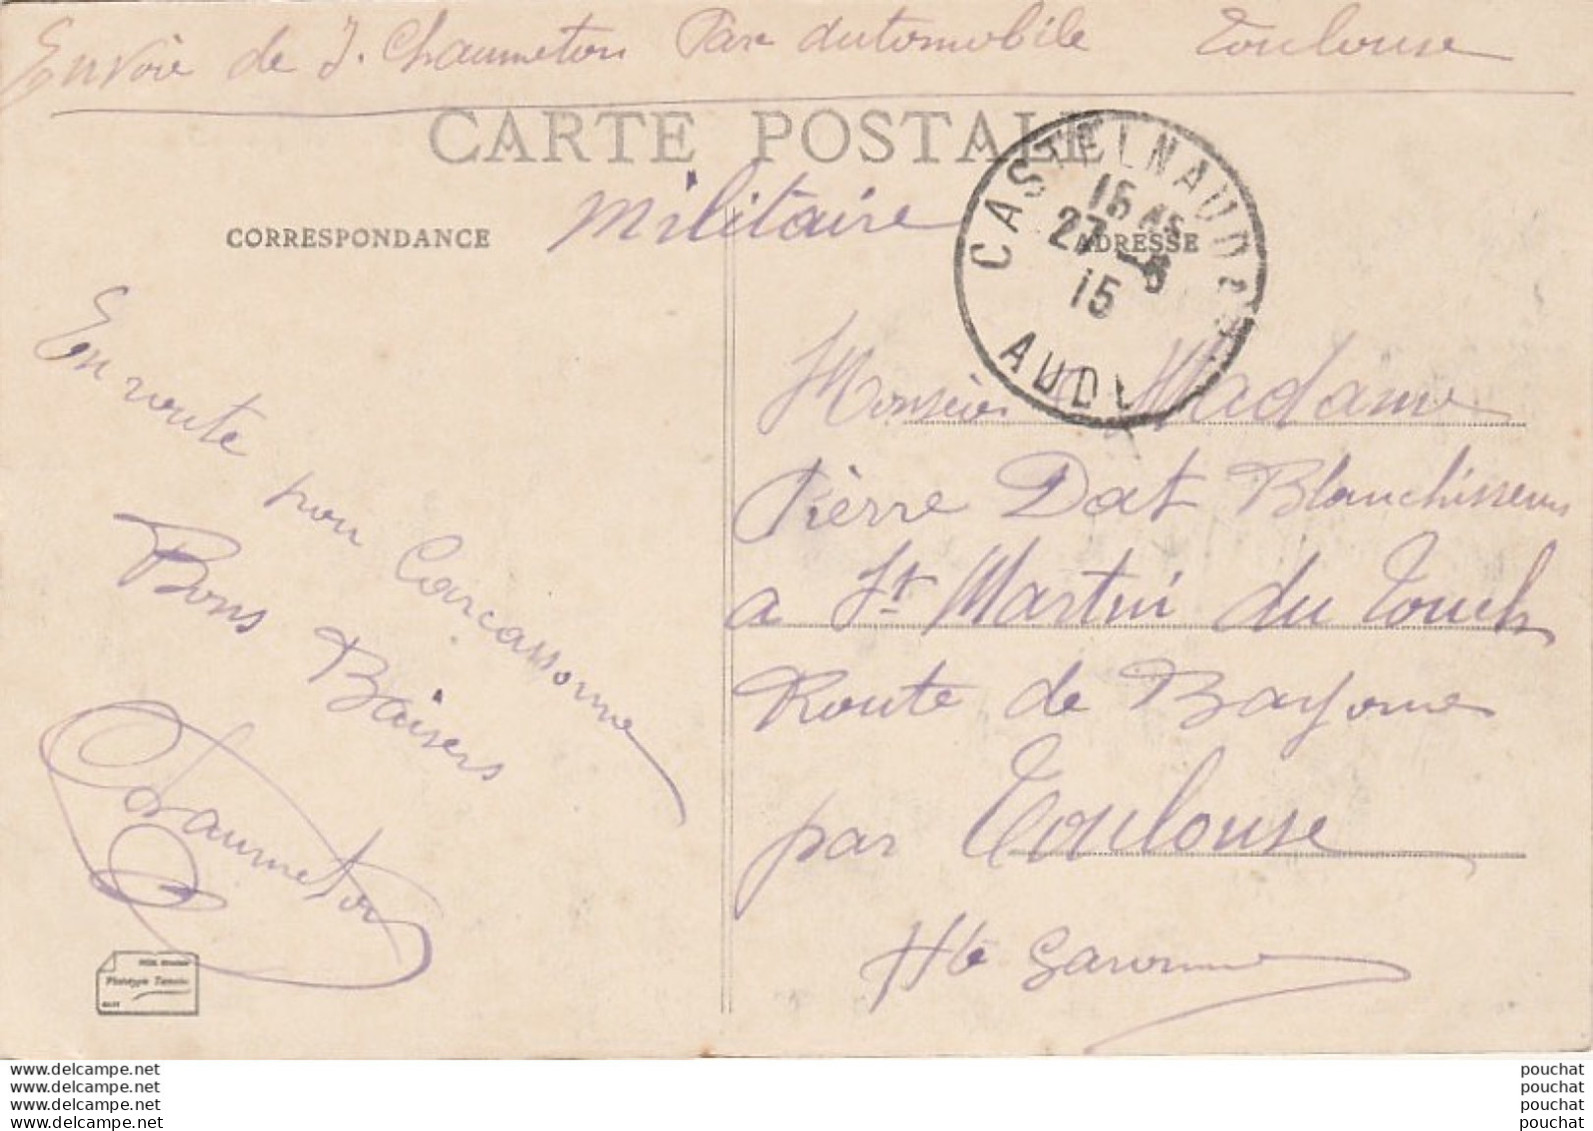 Envoie de J. Chaumeton Parc automobile Toulouse
CARTE POSTALE
militaire
CASTELNAUDARY
15 45
27 -5
15
AUDE
CORRESPONDANCE
ADRESSE
En route pour Carcassonne
Bons Baisers
Chaumeton
Phototypie Tarnaise
Monsieur Madame
Pièrre Dat Blanchisseur
a St Martin du Touch
Route de Bayonne
par Toulouse
Hte Garonne
www.delcampe.net
www.delcampe.net
www.delcampe.net
www.delcampe.net
pouchat
pouchat
pouchat
pouchat